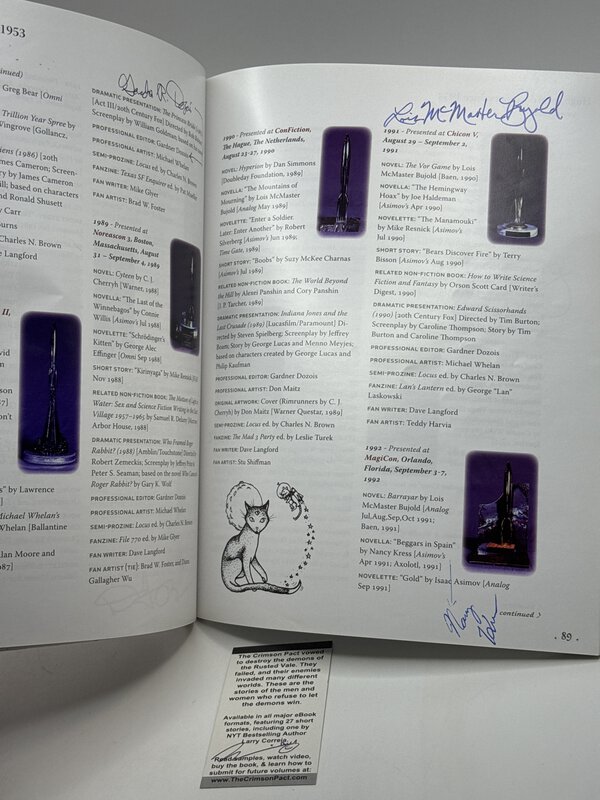 1953
continued)
Greg Bear [Omni
Trillion Year Spree by
Wingrove [Gollancz,
iens (1986) [20th
James Cameron; Screen-
y by James Cameron
ill; based on characters
and Ronald Shusett
Carr
ourns
Charles N. Brown
e Langford
II,
vid
on't
s" by Lawrence
Michael Whelan's
Whelan [Ballantine
lan Moore and
987]
Gardner R. Dozois
DRAMATIC PRESENTATION: The Princess
[Act III/20th Century Fox] Directed by Rob
Screenplay by William Goldman, based on
PROFESSIONAL EDITOR: Gardner Dozois
PROFESSIONAL ARTIST: Michael Whelan
SEMI-PROZINE: Locus ed. by Charles N. Brown
FANZINE: Texas SF Enquirer ed. by Pat Mueller
FAN WRITER: Mike Glyer
FAN ARTIST: Brad W. Foster
1989 - Presented at
Noreascon 3, Boston,
Massachusetts, August
31 – September 4, 1989
NOVEL: Cyteen by C. J.
Cherryh [Warner, 1988]
NOVELLA: "The Last of the
Winnebagos" by Connie
Willis [Asimov's Jul 1988]
NOVELETTE: "Schrödinger's
Kitten" by George Alec
Effinger [Omni Sep 1988]
SHORT STORY: "Kirinyaga" by Mike Resnick [F&SF
Nov 1988]
RELATED NON-FICTION BOOK: The Motion of Light in
Water: Sex and Science Fiction Writing in the East
Village 1957–1965 by Samuel R. Delany [Morrow/
Arbor House, 1988]
DRAMATIC PRESENTATION: Who Framed Roger
Rabbit? (1988) [Amblin/Touchstone] Directed by
Robert Zemeckis; Screenplay by Jeffrey Price &
Peter S. Seaman; based on the novel Who Censored
Roger Rabbit? by Gary K. Wolf
PROFESSIONAL EDITOR: Gardner Dozois
PROFESSIONAL ARTIST: Michael Whelan
SEMI-PROZINE: Locus ed. by Charles N. Brown
FANZINE: File 770 ed. by Mike Glyer
FAN WRITER: Dave Langford
FAN ARTIST [TIE]: Brad W. Foster, and Diana
Gallagher Wu
1990 - Presented at ConFiction,
The Hague, The Netherlands,
August 23-27, 1990
NOVEL: Hyperion by Dan Simmons
[Doubleday Foundation, 1989]
NOVELLA: "The Mountains of
Mourning" by Lois McMaster
Bujold [Analog May 1989]
NOVELETTE: "Enter a Soldier.
Later: Enter Another" by Robert
Silverberg [Asimov's Jun 1989;
Time Gate 1989]
SHORT STORY: "Boobs" by Suzy McKee Charnas
[Asimov's Jul 1989]
RELATED NON-FICTION BOOK: The World Beyond
the Hill by Alexei Panshin and Cory Panshin
[J. P. Tarcher, 1989]
DRAMATIC PRESENTATION: Indiana Jones and the
Last Crusade (1989) [Lucasfilm/Paramount] Di-
rected by Steven Spielberg; Screenplay by Jeffrey
Boam; Story by George Lucas and Menno Meyjes;
based on characters created by George Lucas and
Philip Kaufman
PROFESSIONAL EDITOR: Gardner Dozois
PROFESSIONAL ARTIST: Don Maitz
ORIGINAL ARTWORK: Cover (Rimrunners by C. J.
Cherryh) by Don Maitz [Warner Questar, 1989]
SEMI-PROZINE: Locus ed. by Charles N. Brown
FANZINE: The Mad 3 Party ed. by Leslie Turek
FAN WRITER: Dave Langford
FAN ARTIST: Stu Shiffman
Lois McMaster Bujold
1991 - Presented at Chicon V,
August 29 – September 2,
1991
NOVEL: The Vor Game by Lois
McMaster Bujold [Baen, 1990]
NOVELLA: "The Hemingway
Hoax" by Joe Haldeman
[Asimov's Apr 1990]
NOVELETTE: "The Manamouki"
by Mike Resnick [Asimov's
Jul 1990]
SHORT STORY: "Bears Discover Fire" by Terry
Bisson [Asimov's Aug 1990]
RELATED NON-FICTION BOOK: How to Write Science
Fiction and Fantasy by Orson Scott Card [Writer's
Digest, 1990]
DRAMATIC PRESENTATION: Edward Scissorhands
(1990) [20th Century Fox] Directed by Tim Burton;
Screenplay by Caroline Thompson; Story by Tim
Burton and Caroline Thompson
PROFESSIONAL EDITOR: Gardner Dozois
PROFESSIONAL ARTIST: Michael Whelan
SEMI-PROZINE: Locus ed. by Charles N. Brown
FANZINE: Lan's Lantern ed. by George "Lan"
Laskowski
FAN WRITER: Dave Langford
FAN ARTIST: Teddy Harvia
1992 - Presented at
MagiCon, Orlando,
Florida, September 3-7,
1992
NOVEL: Barrayar by Lois
McMaster Bujold [Analog
Jul,Aug,Sep,Oct 1991;
Baen, 1991]
NOVELLA: "Beggars in Spain"
by Nancy Kress [Asimov's
Apr 1991; Axolotl, 1991]
NOVELETTE: "Gold" by Isaac Asimov [Analog
Sep 1991]
continued
· 89 ·
The Crimson Pact vowed
to destroy the demons of
the Rusted Vale. They
failed, and their enemies
invaded many different
worlds. These are the
stories of the men and
women who refuse to let
the demons win.
Available in all major eBook
formats, featuring 27 short
stories, including one by
NYT Bestselling Author
Larry Correia
Read samples, watch video,
buy the book, & learn how to
submit for future volumes at:
www.TheCrimsonPact.com